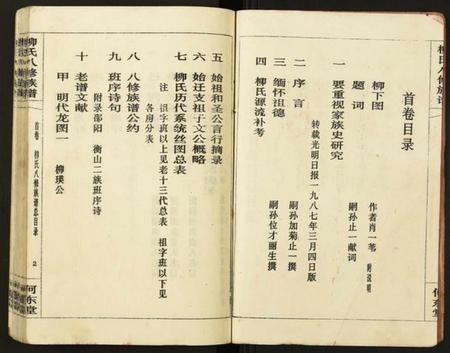 柳氏八修族谱
首卷目录
柳下图
作者肖一苇 附说明
题词
嗣孙止一献词
一 要重视家族史研究
转载光明日报一九八七年三月四日版
二 序言
嗣孙加菊止一撰
三 缅怀祖德
嗣孙位才丽生撰
四 柳氏源流补考
五 始祖和圣公言行摘录
六 始迁支祖于文公概略
七 柳氏历代系统丝图总表
注 祖字班以上见老十三代总表 祖字班以下见
各房分表
八 八修族谱公约
九 班序诗句
附录邵阳 衡山二族班序诗
十 老谱文献
甲 明代龙图一 柳瑛公
柳氏八修族谱
首卷 柳氏八修族谱总目录
2
河东堂